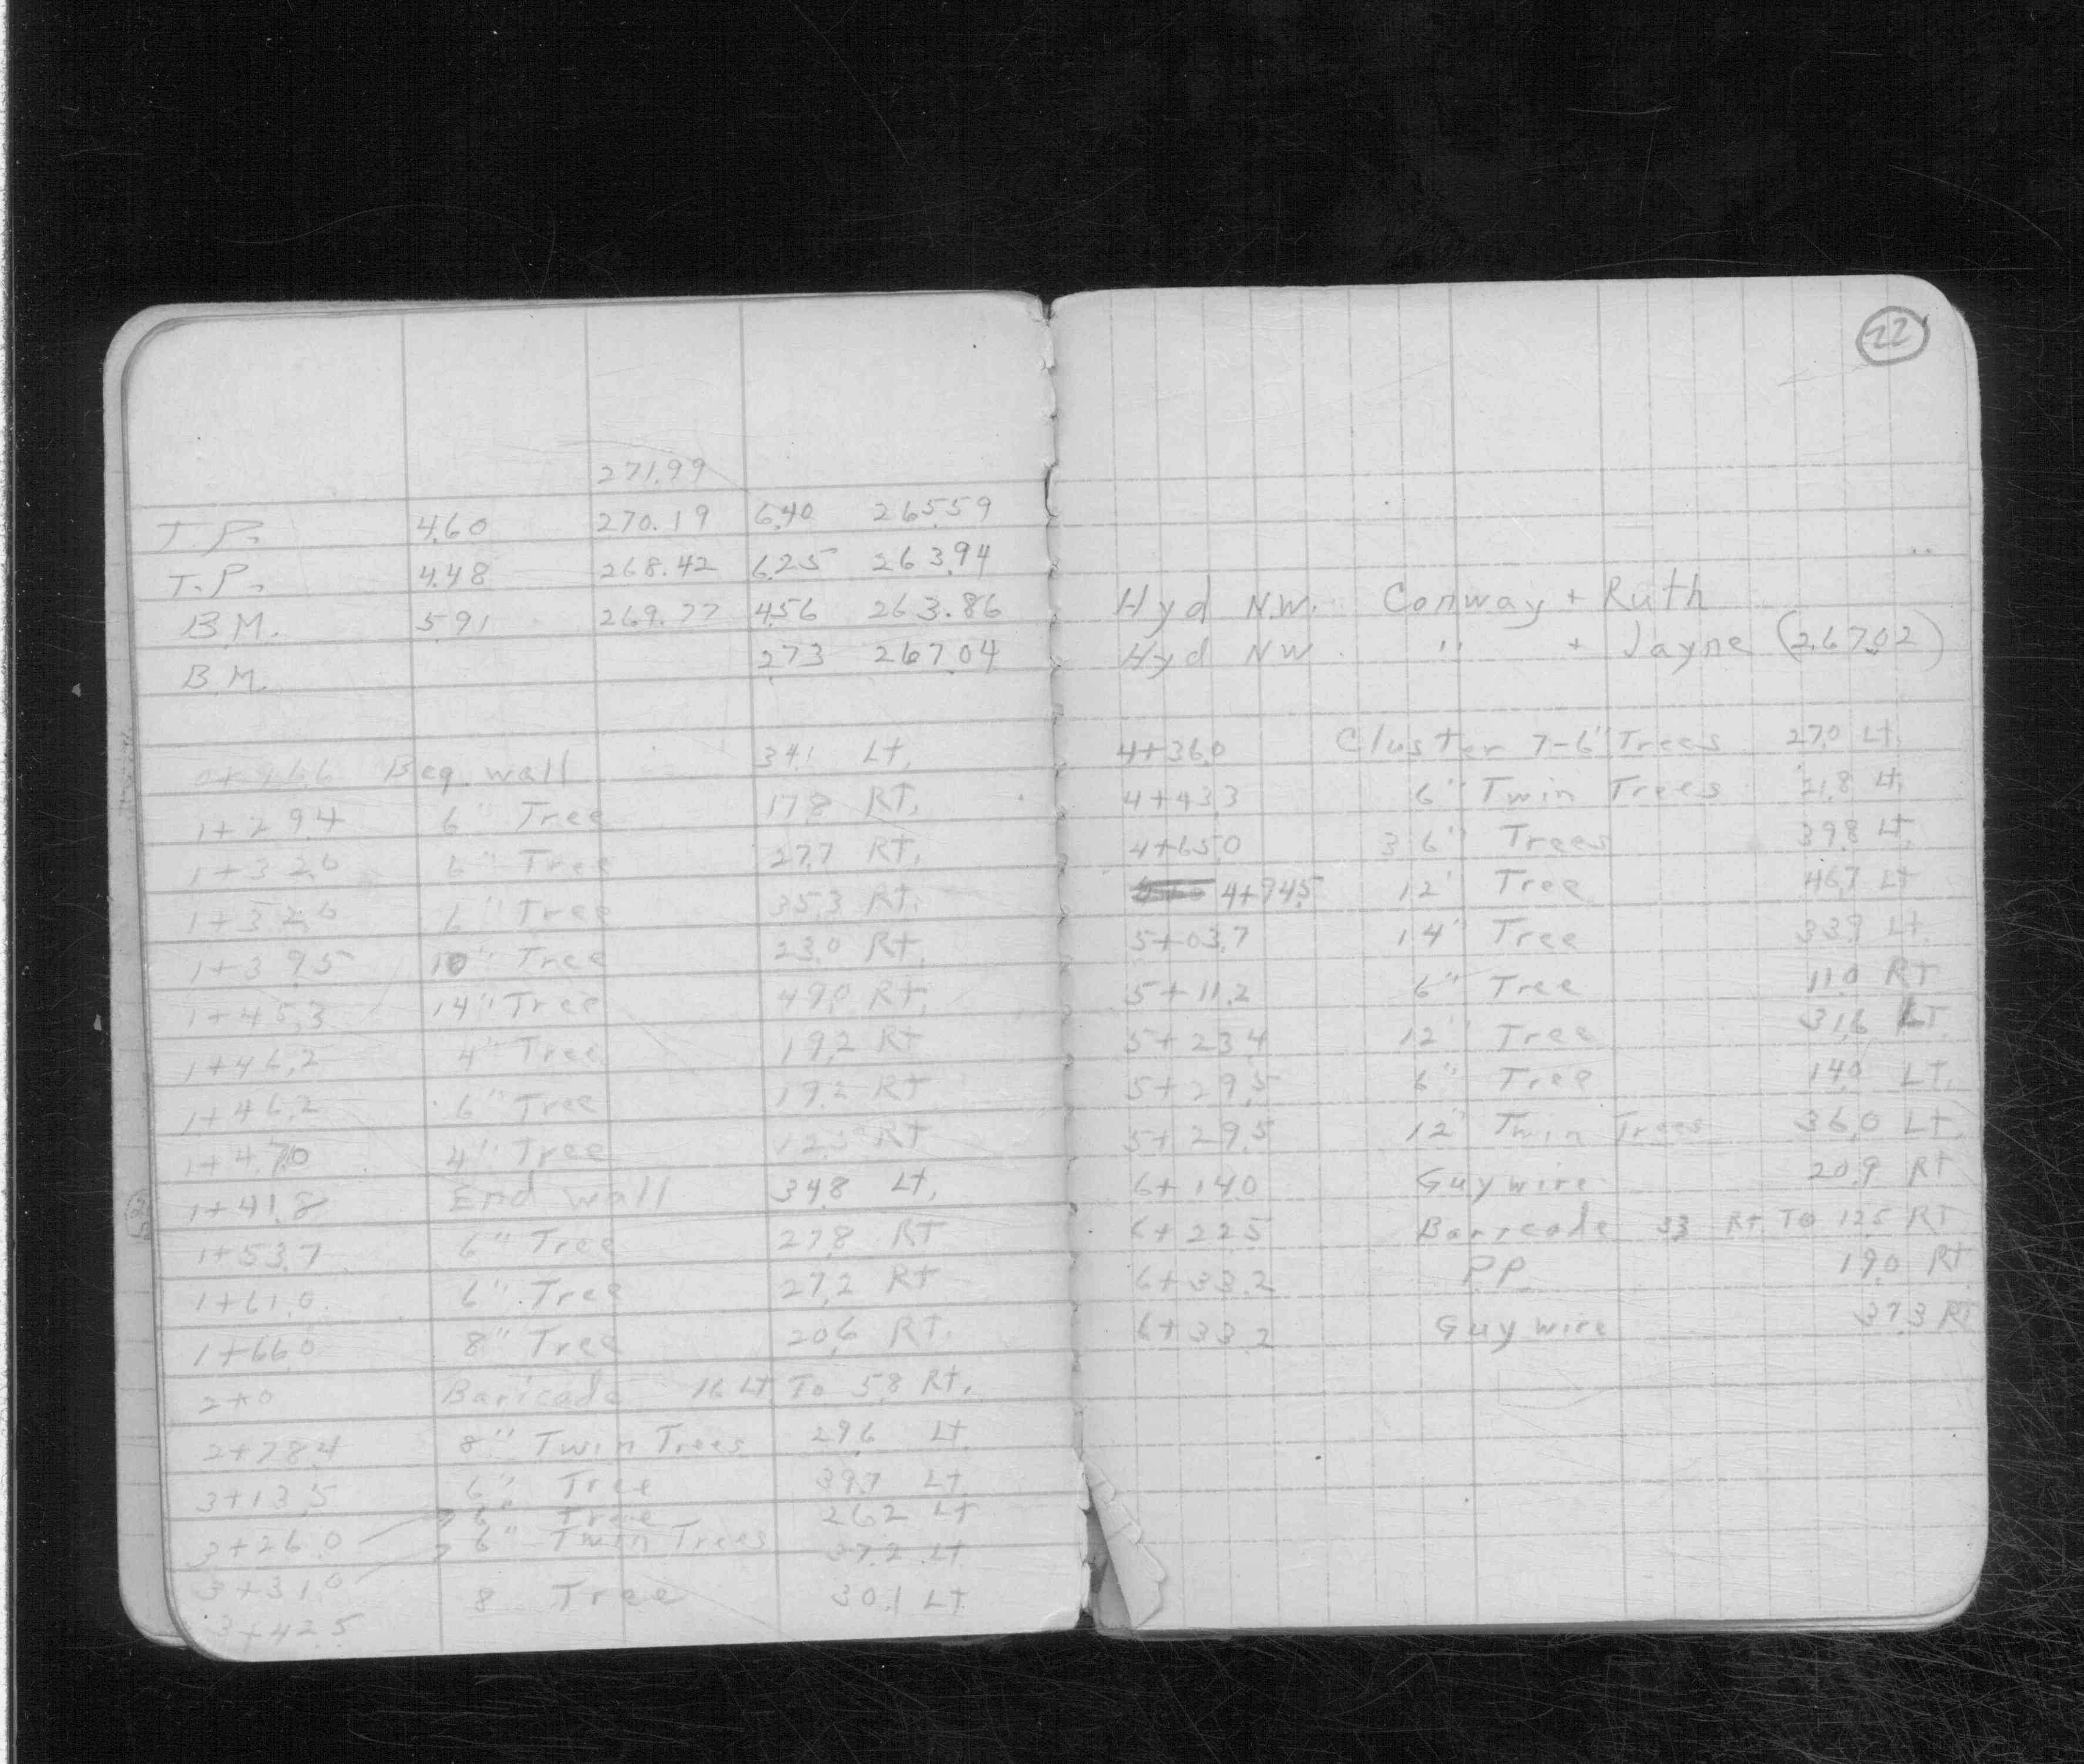 22
271.99
T.P. 4.60 270.19 6.40 265.59
T.P. 4.48 268.42 6.25 263.94
B.M. 5.91 269.77 4.56 263.86
B.M. 2.73 267.04
Beg. wall 34.1 Lt.
1+29.4 6" Tree 17.8 Rt.
1+32.6 6" Tree 27.7 Rt.
1+32.6 6" Tree 35.3 Rt.
1+39.5 10" Tree 23.0 Rt.
1+45.3 14" Tree 49.0 Rt.
1+46.2 4" Tree 19.2 Rt
1+46.2 6" Tree 19.2 Rt
1+47.0 4" Tree Rt
1+41.8 End wall 34.8 Lt.
1+53.7 6" Tree 27.8 Rt
1+61.0 6" Tree 27.2 Rt
1+66.0 8" Tree 20.6 Rt.
2+0 Baricade 16 Lt To 5.8 Rt.
2+78.4 8" Twin Trees 29.6 Lt.
3+13.5 6" Tree 39.7 Lt.
3+26.0 6" Tree 26.2 Lt
3+31.0 6" Twin Trees 37.2 Lt
3+42.5 8 Tree 30.1 Lt
Hyd N.W. Conway + Ruth
Hyd NW. " + Jayne (267.02)
4+36.0 Cluster 7-6" Trees 27.0 Lt.
4+43.3 6" Twin Trees 21.8 Lt.
4+65.0 3 6" Trees 39.8 Lt.
4+94.5 12" Tree 46.7 Lt
5+03.7 14" Tree 33.9 Lt.
5+11.2 6" Tree 11.0 Rt
5+23.4 12" Tree 31.6 LT.
5+29.5 6" Tree 14.0 Lt.
5+29.5 12" Twin Trees 36.0 Lt.
6+14.0 Guy wire 20.9 Rt
6+22.5 Barricade 33 Rt. To 12.5 Rt
6+33.2 P.P. 19.0 Rt
6+33.2 Guy wire 37.3 Rt